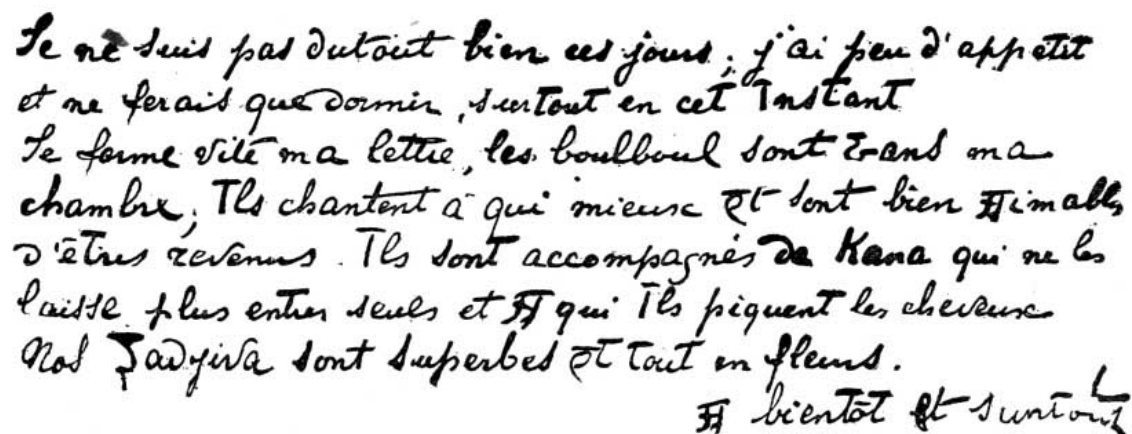 Je ne suis pas dutout bien ces jours; j'ai peu d'appetit
et ne ferais que dormir, surtout en cet Instant
Je ferme vite ma lettre, les boulboul sont dans ma
chambre; Ils chantent à qui mieux et sont bien Aimables
d'êtres revenus. Ils sont accompagnés de Kana qui ne les
laisse plus entrer seuls et A qui Ils piquent les cheveux
Nos sont superbes et tout en fleurs.
A bientôt et surtout